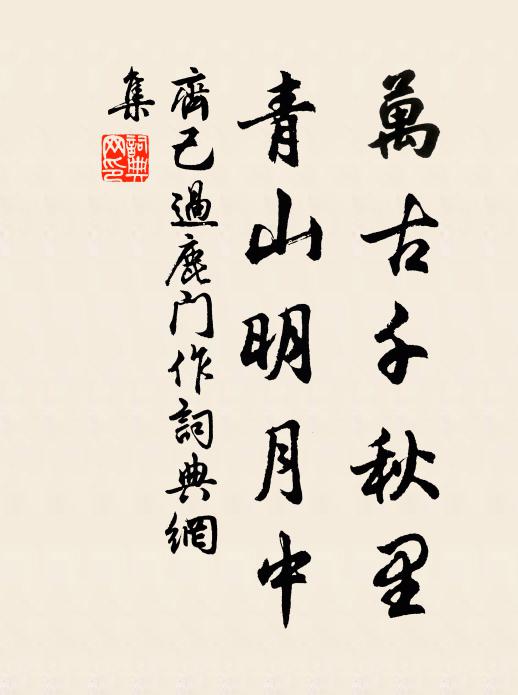 萬古千秋里
青山明月中
齊己過鹿門作詞典網
集
詞典
网印